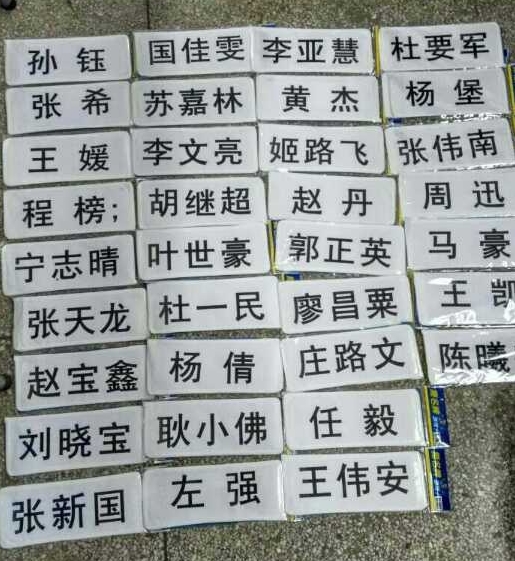 孙 钰 国佳雯 李亚慧 杜要军
张 希 苏嘉林 黄 杰 杨 堡
王 媛 李文亮 姬路飞 张伟南
程 榜; 胡继超 赵 丹 周 迅
宁志晴 叶世豪 郭正英 马 豪
张天龙 杜一民 廖昌粟 王 凯
赵宝鑫 杨 倩 庄路文 陈曦
刘晓宝 耿小佛 任 毅
张新国 左 强 王伟安